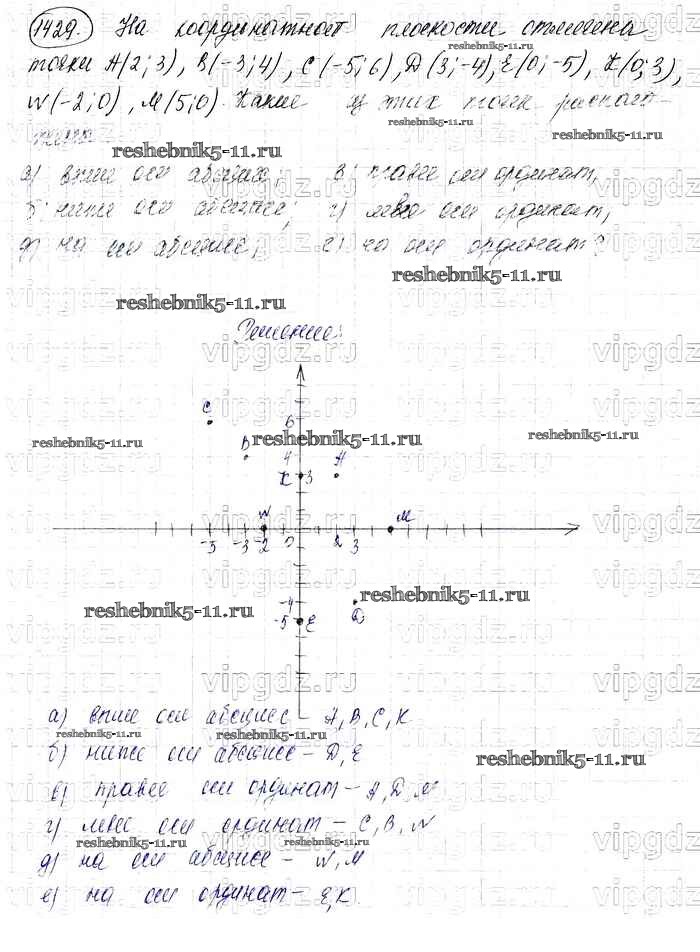 1429. На координатной плоскости отмечена
точки A(2;3), B(-3;4), C(-5;6), D(3;-4), E(0;-5), K(0;3),
N(-2;0), M(5;0). Какие из этих точек распол-
reshebnik5-11.ru
а) выше оси абсцисс; в) правее оси ординат,
б) ниже оси абсцисс; г) левее оси ординат,
д) на оси абсцисс; е) на оси ординат?
Решение:
C
6
B
4
A
K 3
N
M
-5 -3 -2 0 2 3
-4
D
-5 E
а) выше оси абсцисс A, B, C, K.
б) ниже оси абсцисс – D, E
в) правее оси ординат – A, D, M.
г) левее оси ординат – C, B, N
д) на оси абсцисс – N, M
е) на оси ординат – E, K.
reshebnik5-11.ru
vipgdz.ru